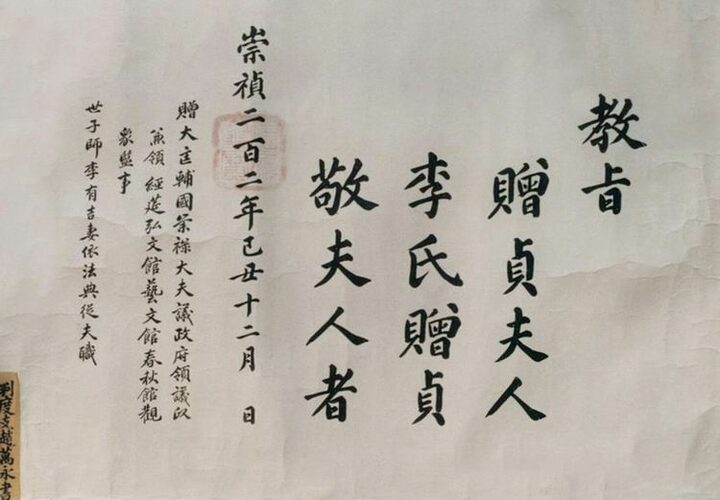 教旨
贈貞夫人
李氏贈貞
敬夫人者
崇禎二百二年己丑十二月 日
贈大匡輔國崇祿大夫議政府領議政
兼領 經筵弘文館藝文館春秋館觀
象監事
世子師李有吉妻依法典從夫職
判度支趙萬永書